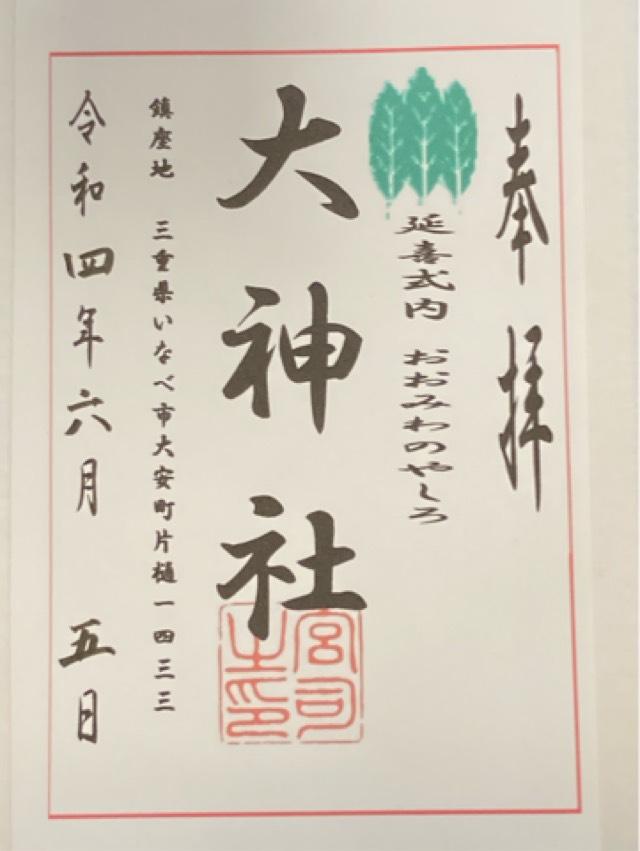 奉拝
延喜式内 おおみわのやしろ
大神社
宮司之印
鎮座地 三重県いなべ市大安町片樋一四三三
令和四年六月 五日